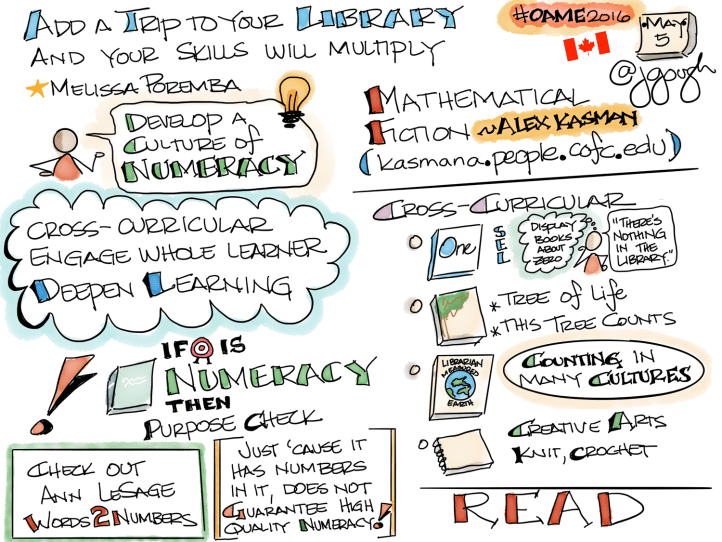 ADD A TRIP TO YOUR LIBRARY
AND YOUR SKILLS WILL MULTIPLY
MELISSA POREMBA
#OAME2016
MAY
5
@jgough
DEVELOP A
CULTURE OF
NUMERACY
MATHEMATICAL
FICTION ~ALEX KASMAN
(kasmana.people.cofc.edu)
CROSS-CURRICULAR
ENGAGE WHOLE LEARNER
DEEPEN LEARNING
CROSS-CURRICULAR
One
SEL
DISPLAY
BOOKS
ABOUT
ZERO
"THERE'S
NOTHING
IN THE
LIBRARY."
*TREE OF LIFE
*THIS TREE COUNTS
LIBRARIAN
MEASURED
EARTH
COUNTING IN
MANY CULTURES
CREATIVE ARTS
KNIT, CROCHET
IF IS
NUMERACY
THEN
PURPOSE CHECK
CHECK OUT
ANN LESAGE
WORDS2NUMBERS
JUST 'CAUSE IT
HAS NUMBERS
IN IT, DOES NOT
GUARANTEE HIGH
QUALITY NUMERACY!
READ